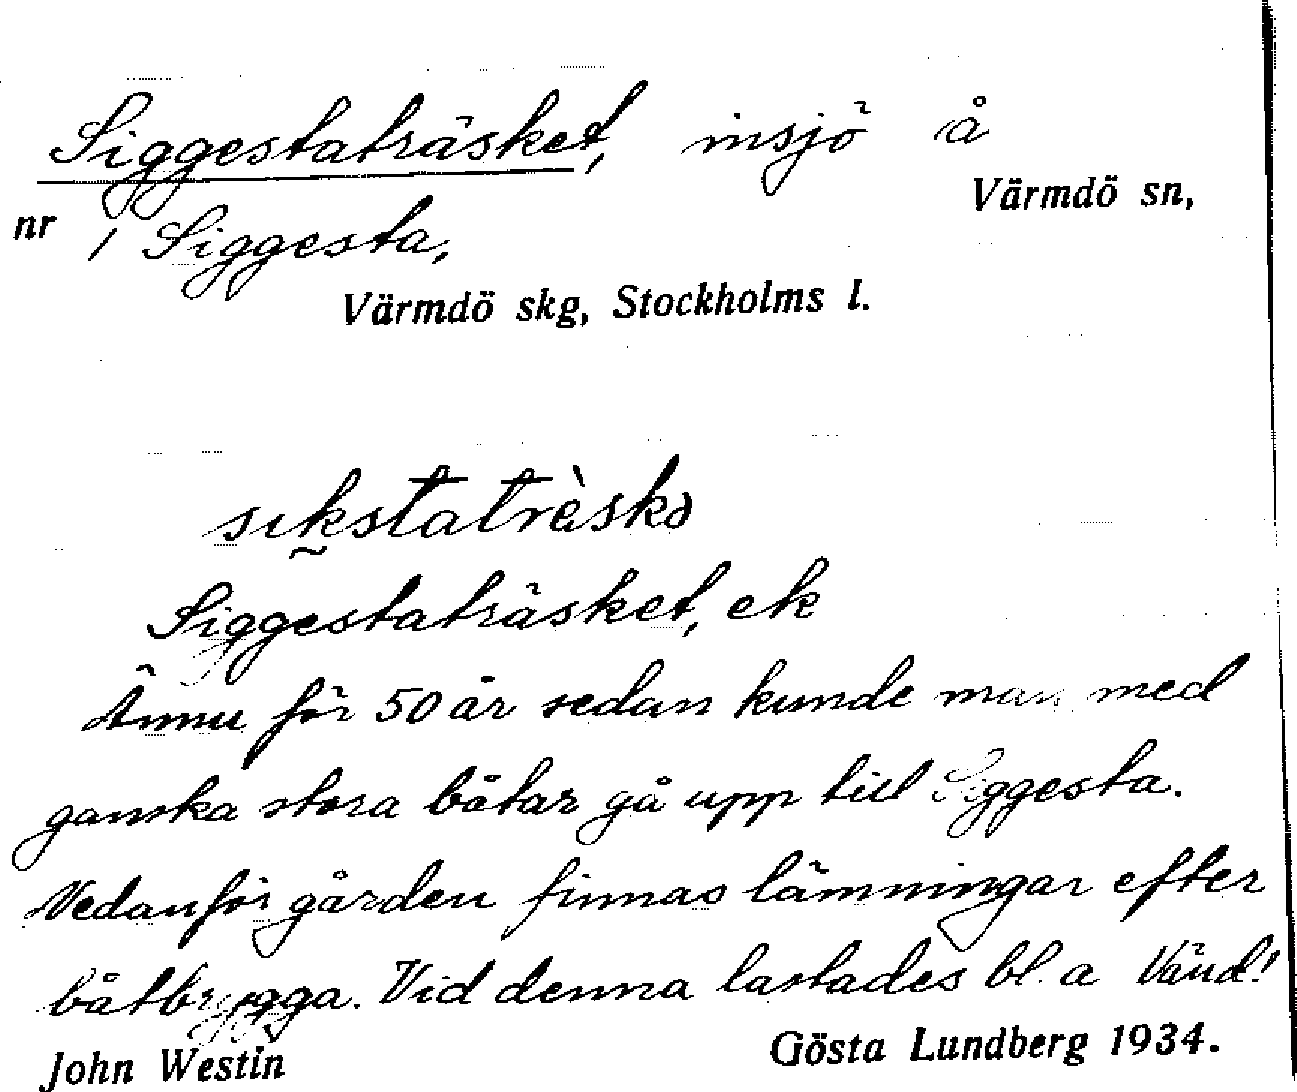 Siggestaträsket, insjö å
Värmdö sn,
nr / Siggesta,
Värmdö skg, Stockholms l.
sıkstatrὲskə
Siggestaträsket, ek
Ännu för 50 år sedan kunde man med
ganska stora båtar gå upp till Siggesta.
Nedanför gården finnas lämningar efter
båtbrygga. Vid denna lastades bl. a Vänd!
John Westin Gösta Lundberg 1934.